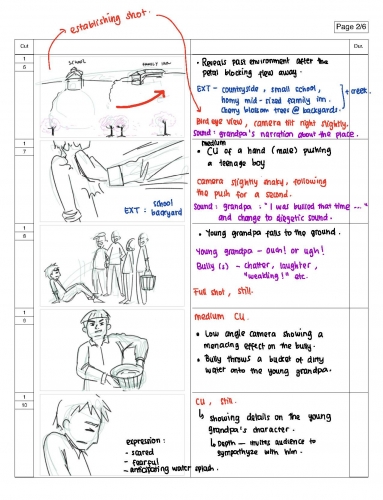 establishing shot.
Page 2/6
Cut
Dur.
1
6
SCHOOL
FAMILY INN.
• Reveals past environment after the
petal blocking flew away.
EXT - countryside, small school,
homy mid-sized family inn.
cherry blossom trees @ backyards.
+ creek.
Bird eye view, camera tilt right slightly.
Sound: grandpa's narration about the place.
1
7
EXT : school
backyard
medium
• CU of a hand (male) pushing
a teenage boy
camera slightly shaky, following
the push for a second.
Sound : grandpa : "I was bullied that time ..."
and change to diegetic sound.
1
8
• Young grandpa falls to the ground.
Young grandpa - ouch! or ugh!
Bully(s) - chatter, laughter,
"weakling!" etc.
Full shot, still.
1
9
medium CU.
• Low angle camera showing a
menacing effect on the bully.
• Bully throws a bucket of dirty
water onto the young grandpa.
1
10
expression :
- scared
- fearful
- anticipating water splash.
CU, still.
↳ showing details on the young
grandpa's character.
↳ Depth - invites audience to
sympathyze with him.